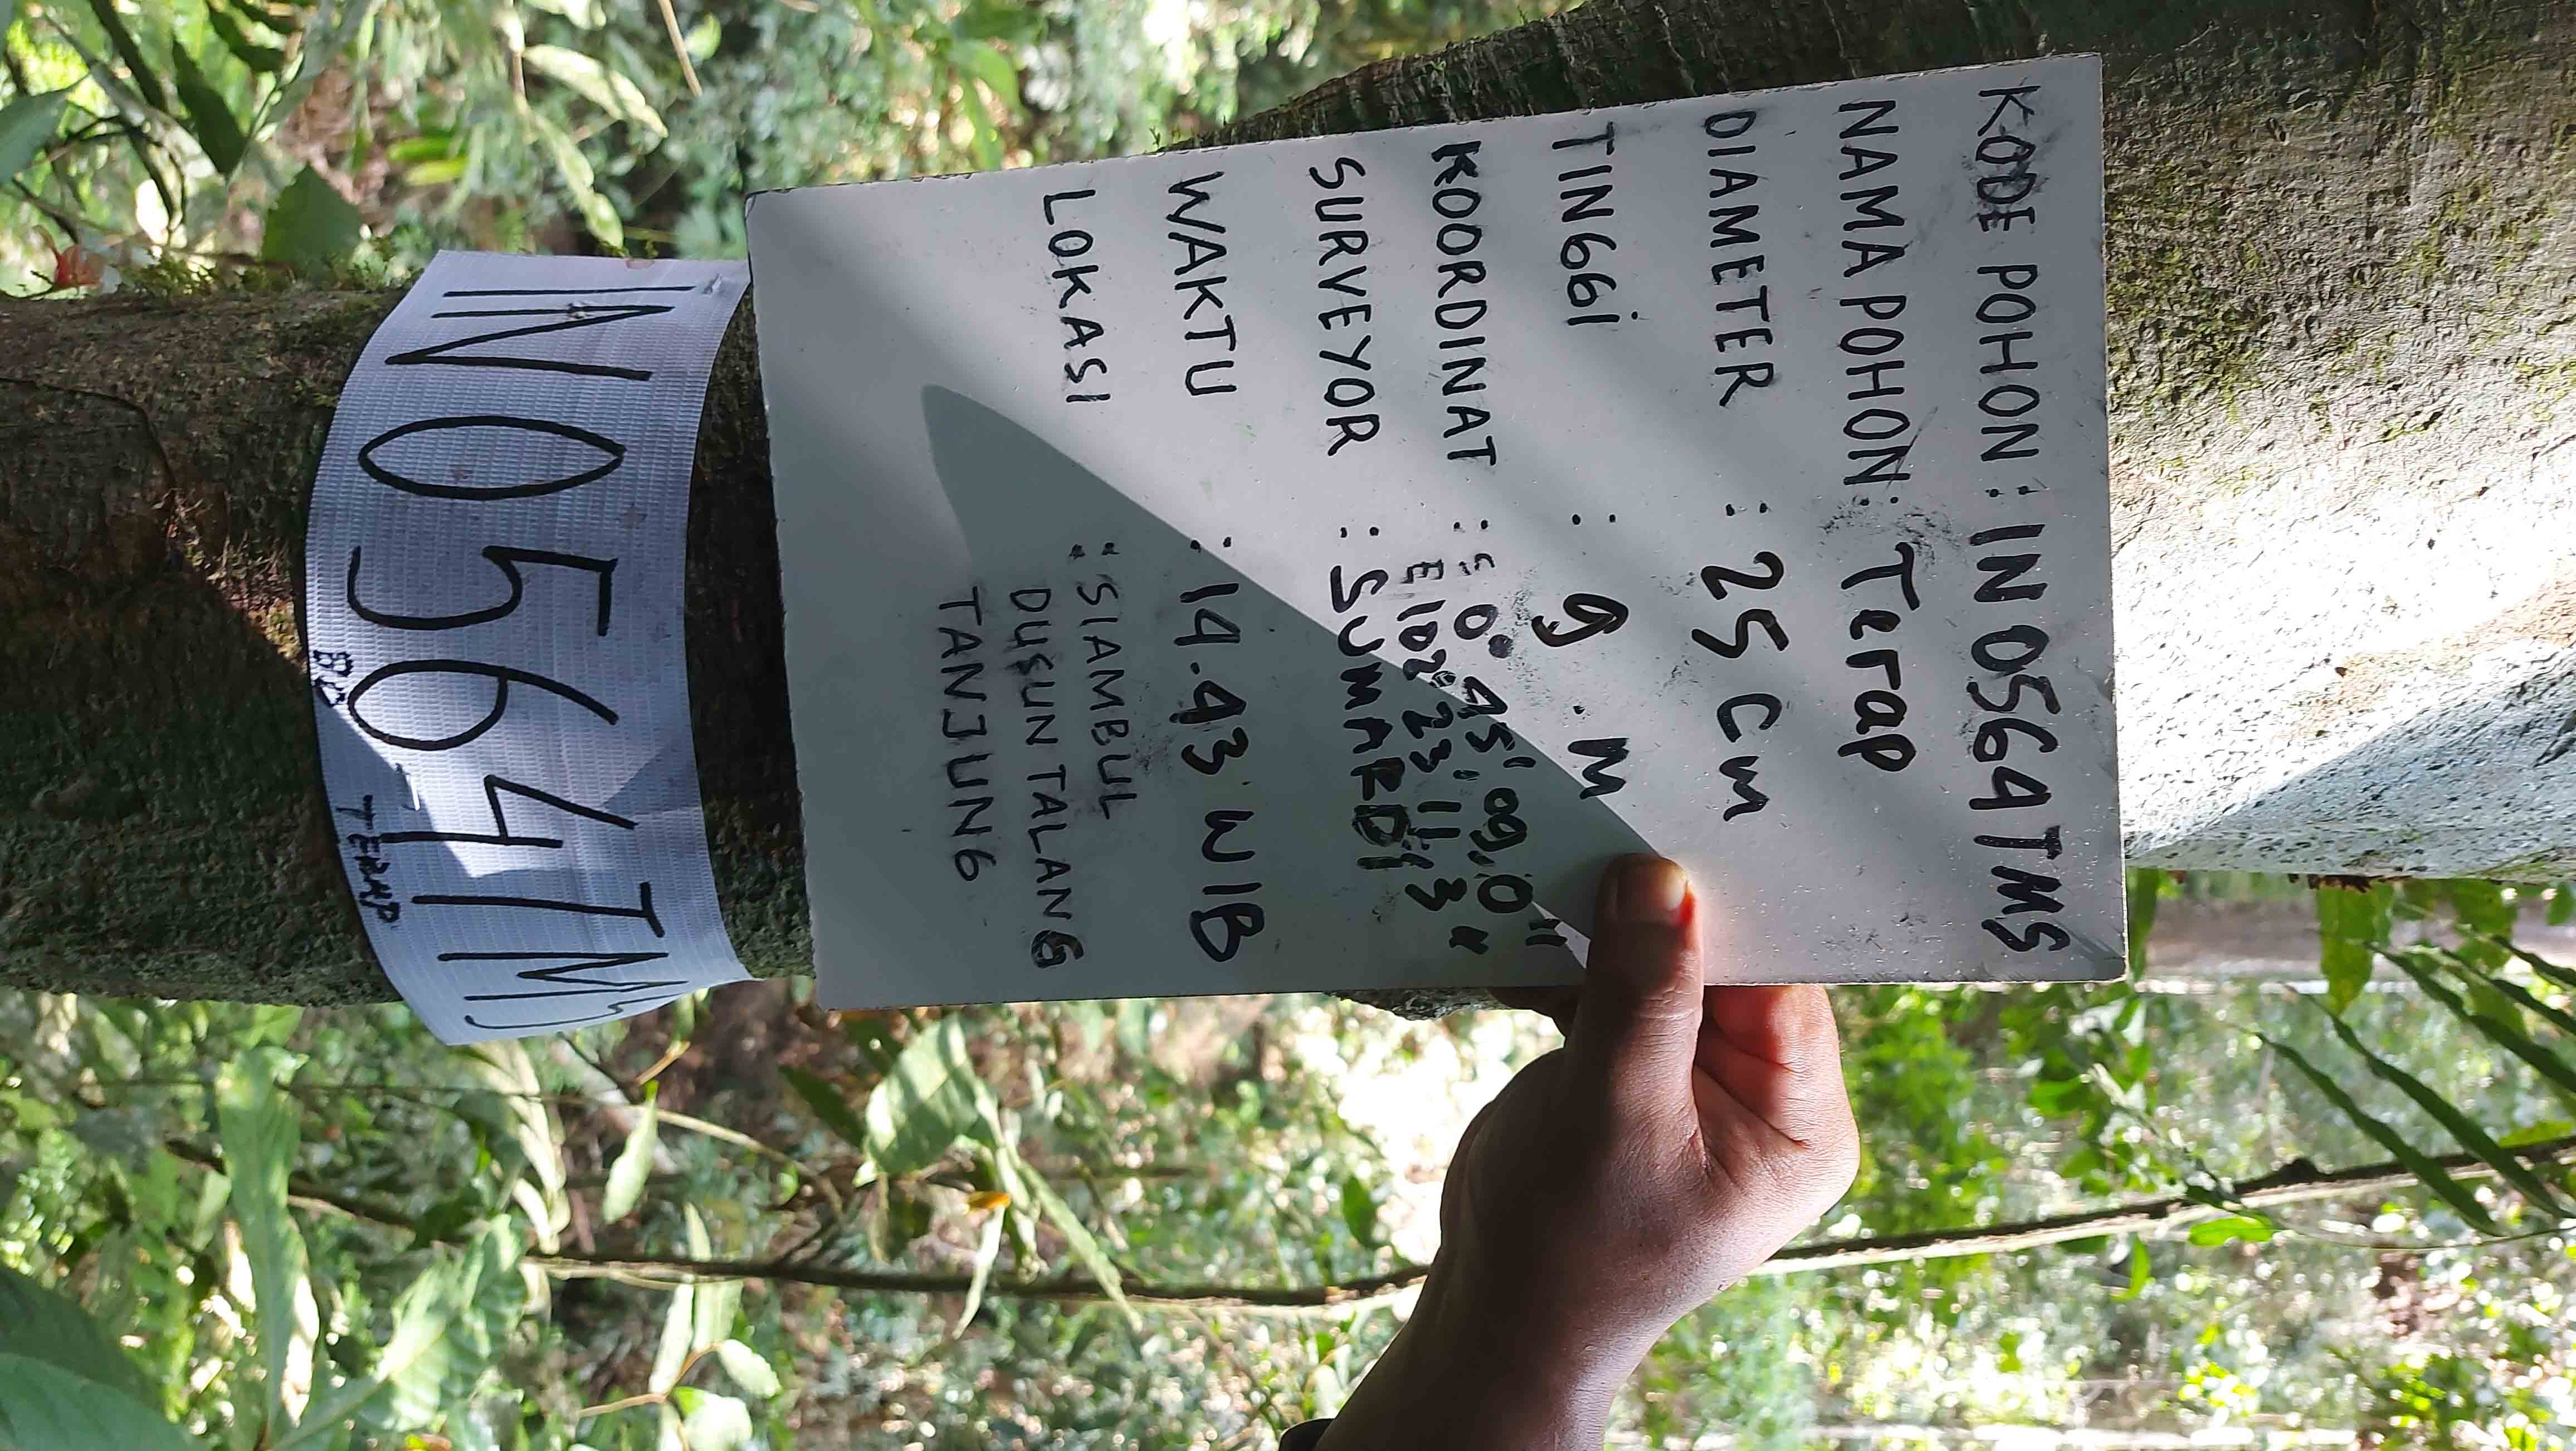 KODE POHON : IN0564TMS
NAMA POHON : Terap
DIAMETER : 25 cm
TINGGi : 9 . M
KOORDINAT : S 0° 45' 09.0"
E 102° 23' 11.3"
SURVEYOR : SUMARDI
WAKTU : 14.43 WIB
LOKASI : SIAMBUL
DUSUN TALANG
TANJUNG
IN0564TMS
TERAP